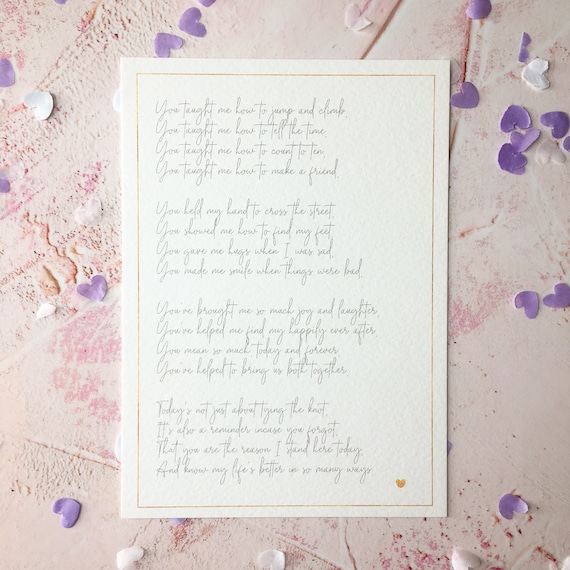 You taught me how to jump and climb.
You taught me how to tell the time.
You taught me how to count to ten.
You taught me how to make a friend.
You held my hand to cross the street.
You showed me how to find my feet.
You gave me hugs when I was sad.
You made me smile when things were bad.
You've brought me so much joy and laughter.
You've helped me find my happily ever after.
You mean so much today and forever.
You've helped to bring us both together.
Today's not just about tying the knot,
It's also a reminder incase you forgot,
That you are the reason I stand here today,
And know my life's better in so many ways.